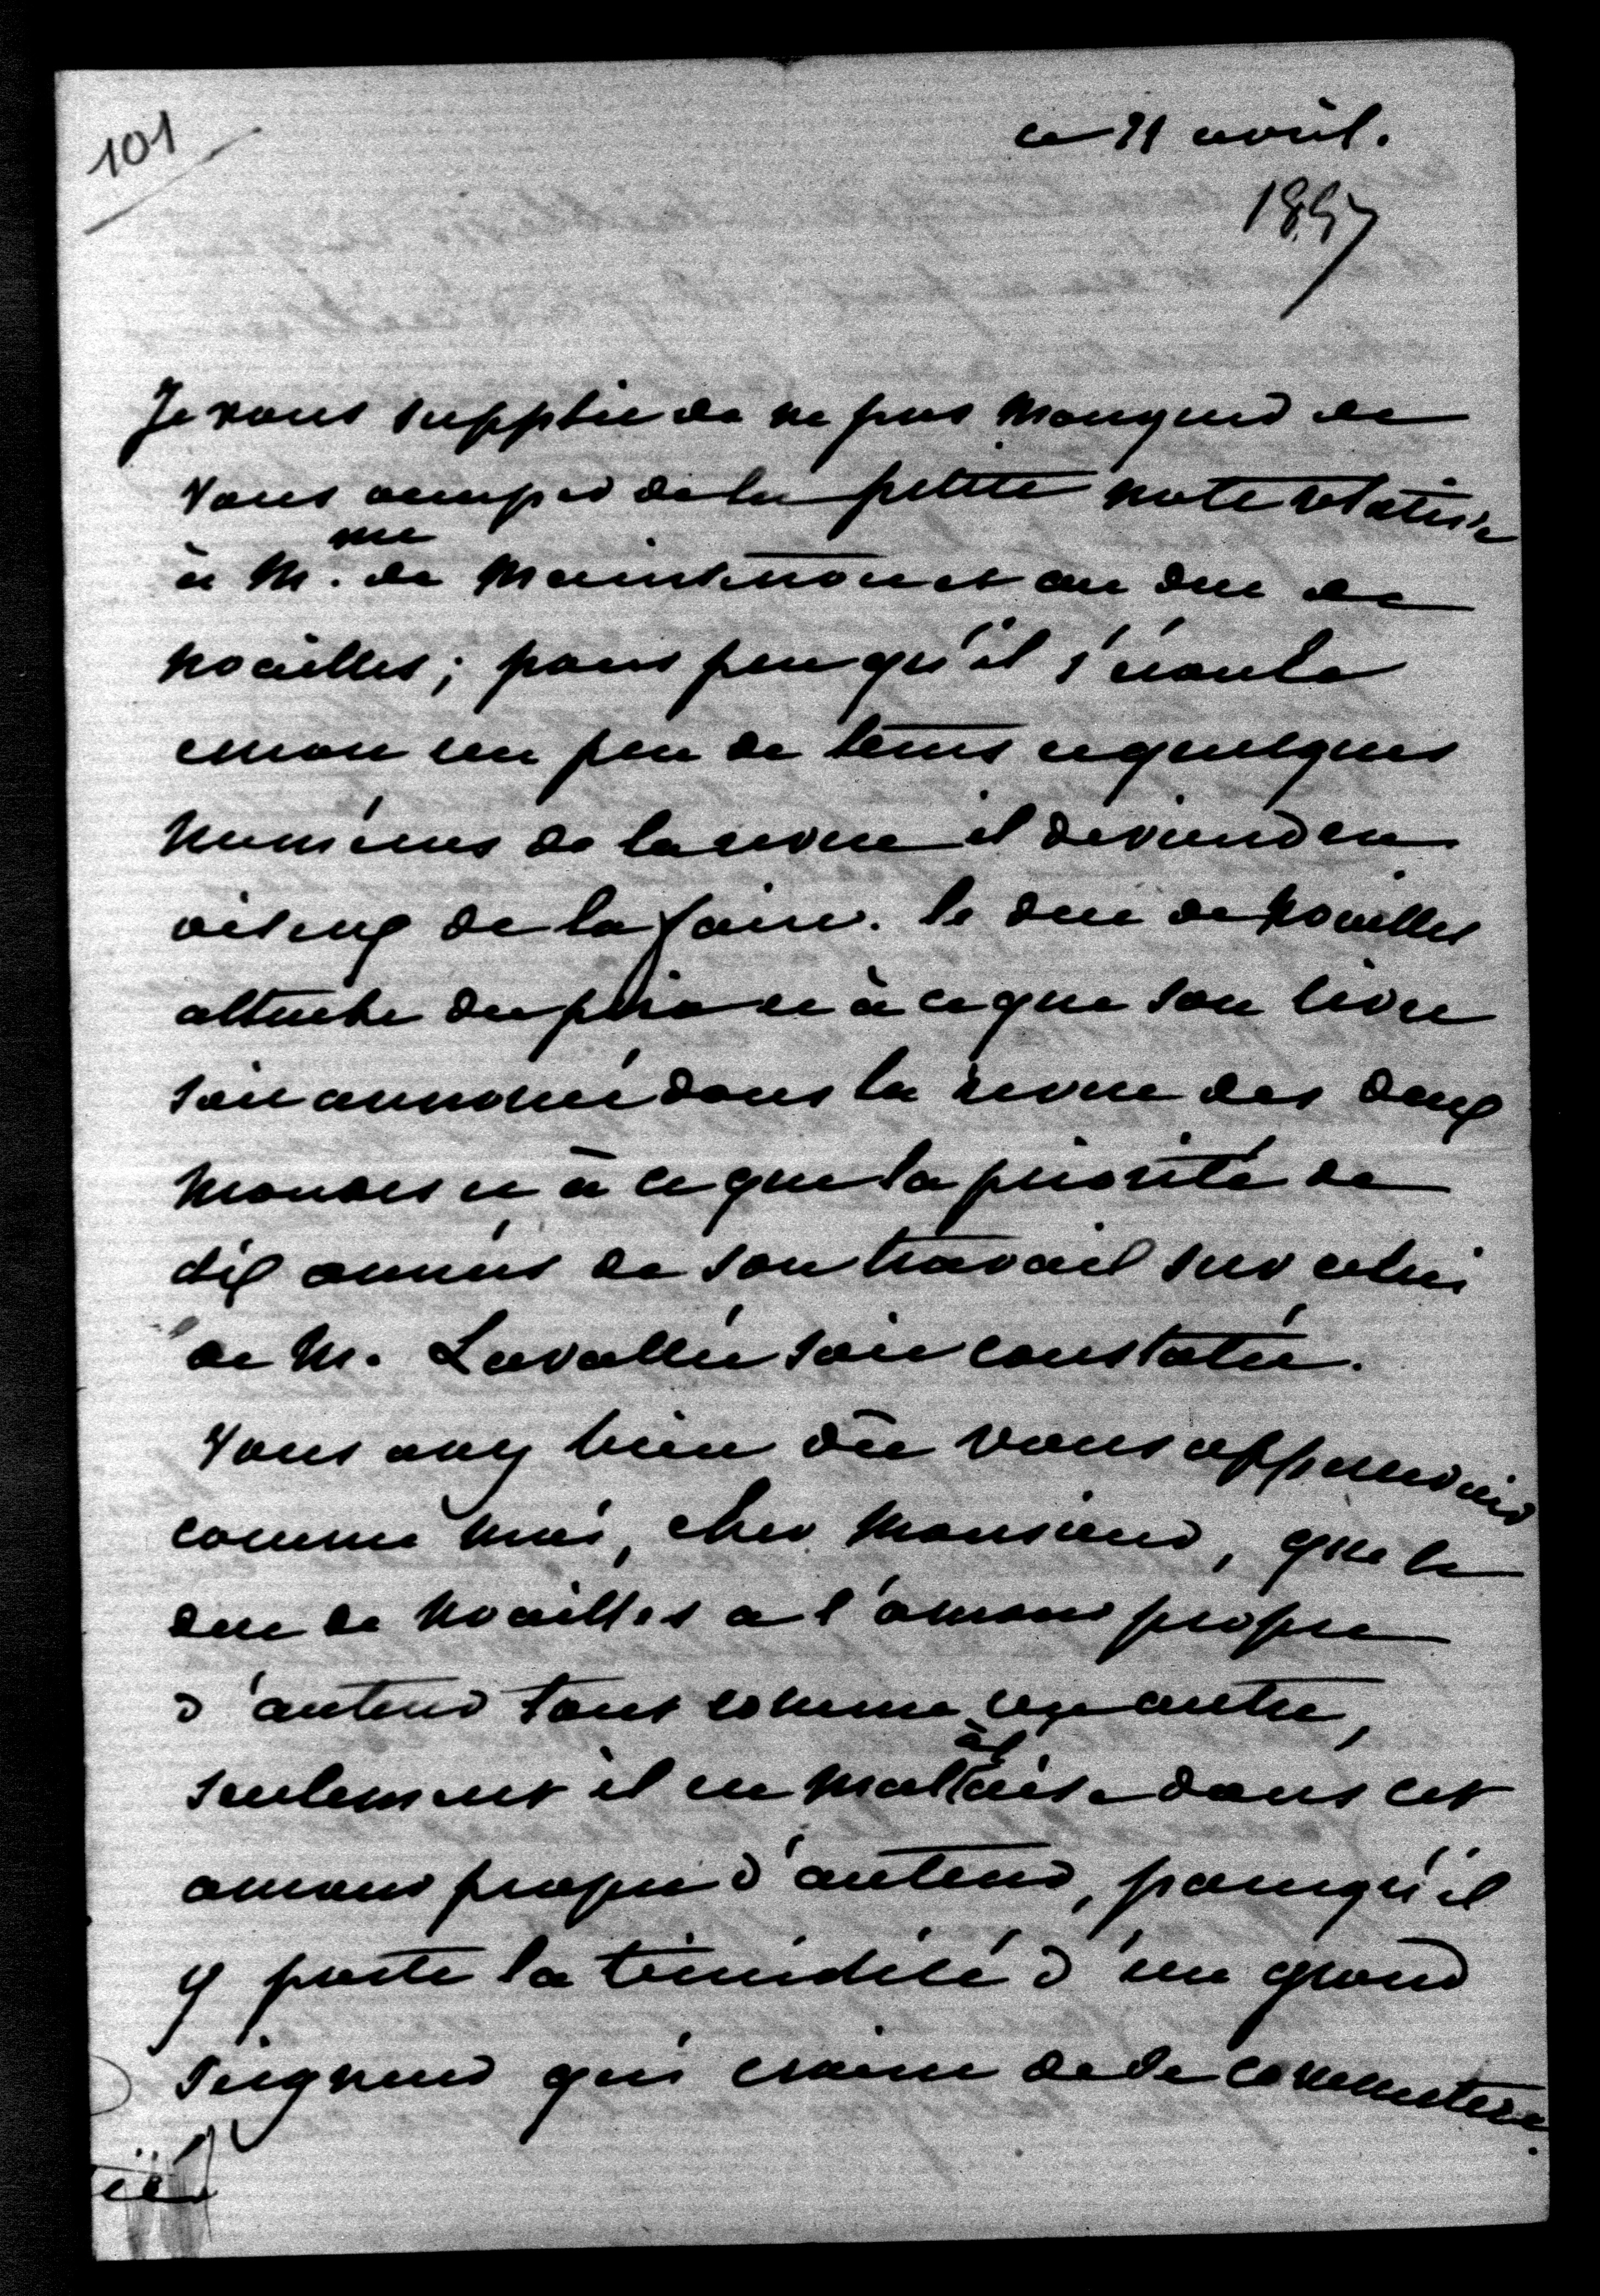 101
ce 21 avril.
1857
Je vous supplie de ne pas manquer de
vous occuper de la petite note relative
à M.me de Maintenon et au duc de
Noailles; pour peu qu'il s'écoule
encore un peu de tems et quelques
numéros de la revue il deviendra
oiseux de la faire. le duc de Noailles
attache du prix a ce à ce que son livre
soit annoncé dans la revue des deux
mondes et à ce que la priorité de
dix années de son travail sur celui
de M. Lavallée soit constatée.
Vous avez bien dû vous appercevoir
comme moi, cher Monsieur, que le
duc de Noailles a l'amour propre
d'auteur tout comme un autre,
seulement il est mal à l'aise dans cet
amour propre d'auteur, parcequ'il
y porte la timidité d'un grand
seigneur qui craint de se commettre.